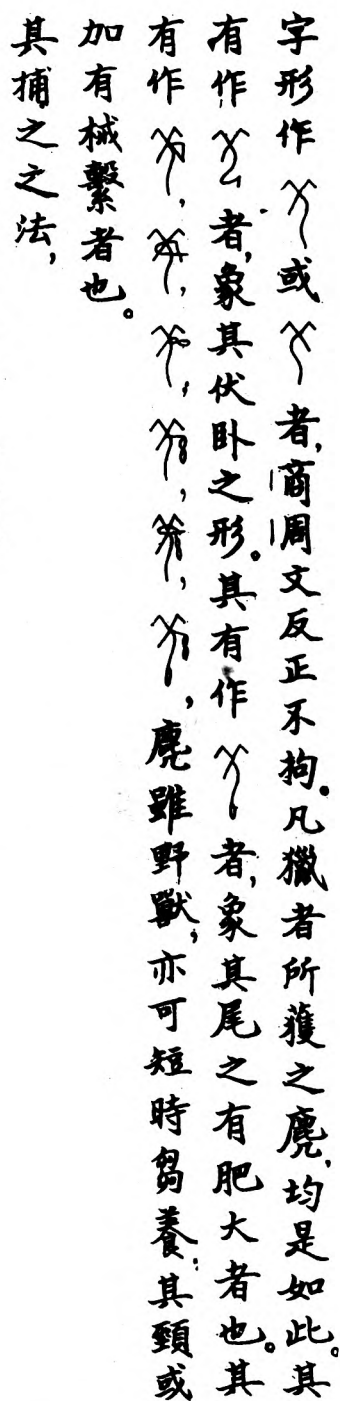 字形作或者,商周文反正不拘。凡獵者所獲之麂,均是如此。其
有作者,象其伏卧之形。其有作者,象其尾之有肥大者也。其
有作,,,,,,麂雖野獸,亦可短時芻養,其頸或
加有械繫者也。
其捕之之法,